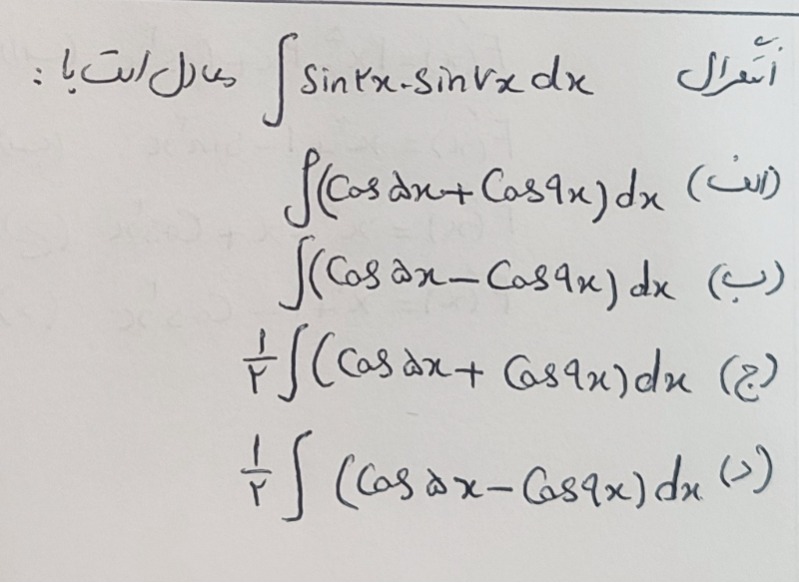 انتگرال ∫ sin۲x . sin۷x dx معادل است با :
الف) ∫(Cos ۵x + Cos ۹x) dx
ب) ∫(Cos ۵x − Cos ۹x) dx
ج) ۱/۲ ∫(Cos ۵x + Cos ۹x) dx
د) ۱/۲ ∫ (Cos ۵x − Cos ۹x) dx